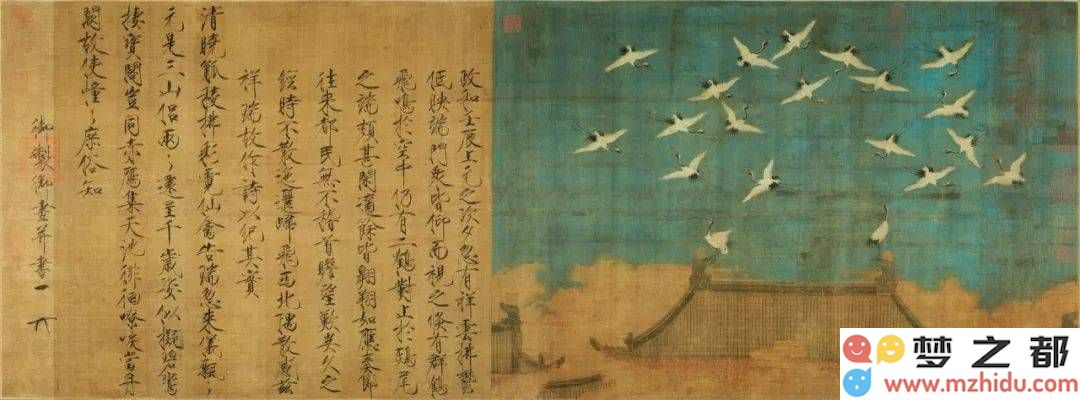 政和壬辰上元之次夕忽有祥雲拂鬱
低映端門衆皆仰而視之倐有群鶴
飛鳴於空中仍有二鶴對止於鴟尾
之端頗甚閒適餘皆翱翔如應奏節
往來都民無不稽首瞻望歎異久之
經時不散迤邐歸飛西北隅散感兹
祥瑞故作詩以紀其實
清曉觚稜拂彩霓仙禽告瑞忽來儀飄〻
元是三山侣兩〻還呈千歲姿似擬碧鸞
棲寶閣豈同赤鴈集天池徘徊嘹唳當丹
闕故使憧〻庶俗知
御製御畫并書
梦之都
www.mzhidu.com